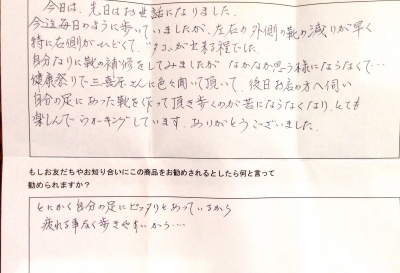 今日は、先日はお世話になりました。
今迄毎日のように歩いていましたが、左右の外側の靴の減りが早く
特に右側がひどくて、タコが出来る程でした。
自分なりに靴の補修をしてみましたが なかなか思う様にならなくて…
健康祭りで三喜屋さんに色々聞いて頂いて、後日お店の方へ伺い
自分の足にあった靴を作って頂き歩くのが苦にならなくなり、とても
楽しんでウォーキングしています。ありがとうございました。
もしお友だちやお知り合いにこの商品をお勧めされるとしたら何と言って
勧められますか?
とにかく自分の足にピッタリとあっているから
疲れる事なく歩きやすいから…